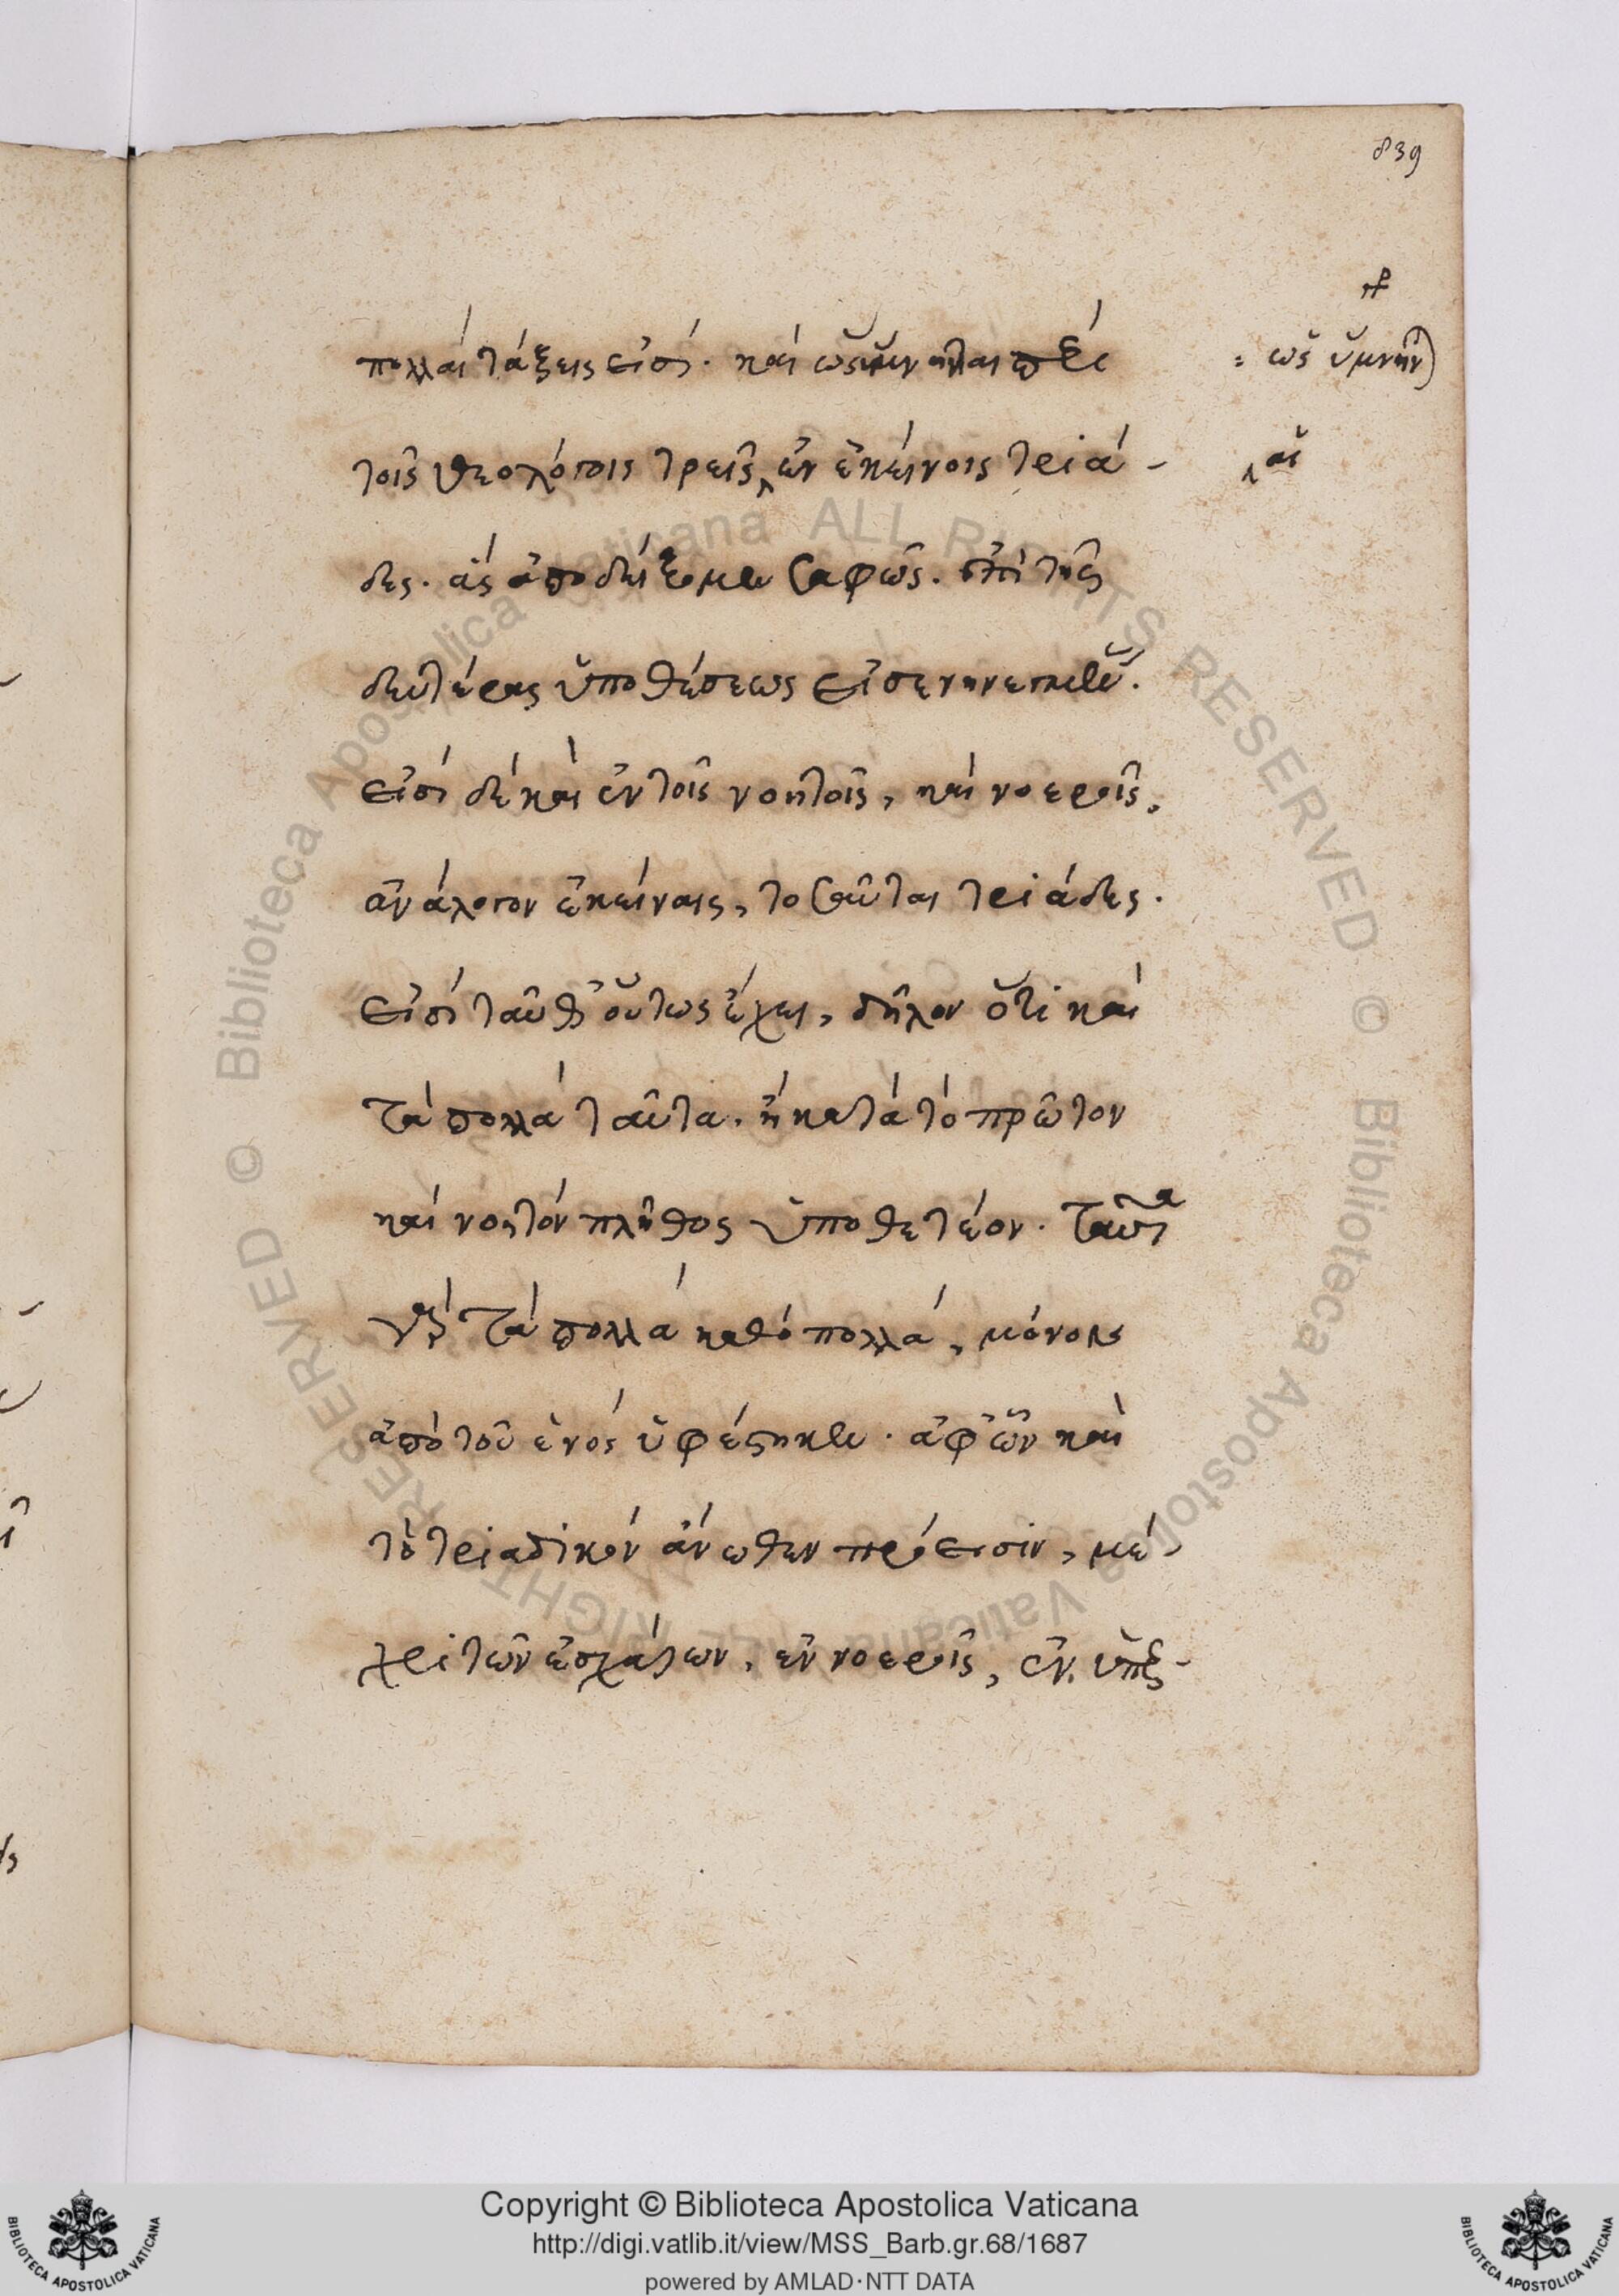 839
πολλαὶ τάξεις εἰσί. καὶ ὡς ὕμνηται παρὰ
= ὡς ὑμνην)
τοῖς θεολόγοις τρεῖς ἐν ἐκείνοις τριά-
αἱ
δες. ἃς ἀποδείξομεν σαφῶς. ἐπὶ τῆς
δευτέρας ὑποθέσεως εἰσενηνεγμέν.
εἰσὶ δὲ καὶ ἐν τοῖς νοητοῖς, καὶ νοεροῖς.
ἀνάλογον ἐκείναις, τοσαῦται τριάδες.
εἰσὶ ταῦθ' οὕτως ἔχει, δῆλον ὅτι καὶ
τὰ πολλὰ ταῦτα. ἢ κατὰ τὸ πρῶτον
καὶ νοητὸν πλῆθος ὑποθετέον. ταῦτα
γὰρ τὰ πολλὰ καθὸ πολλά, μόνως
ἀπὸ τοῦ ἑνὸς ὑφέστηκεν. ἀφ' ὧν καὶ
τὸ τριαδικὸν ἄνωθεν πρόεισιν, μέ-
χρι τῶν ἐσχάτων. ἐν νοεροῖς, ἐν ὑπερ-
Copyright © Biblioteca Apostolica Vaticana
http://digi.vatlib.it/view/MSS_Barb.gr.68/1687
powered by AMLAD·NTT DATA
© Biblioteca Apostolica Vaticana ALL RIGHTS RESERVED
© Biblioteca Apostolica Vaticana ALL RIGHTS RESERVED
BIBLIOTECA APOSTOLICA VATICANA
BIBLIOTECA APOSTOLICA VATICANA